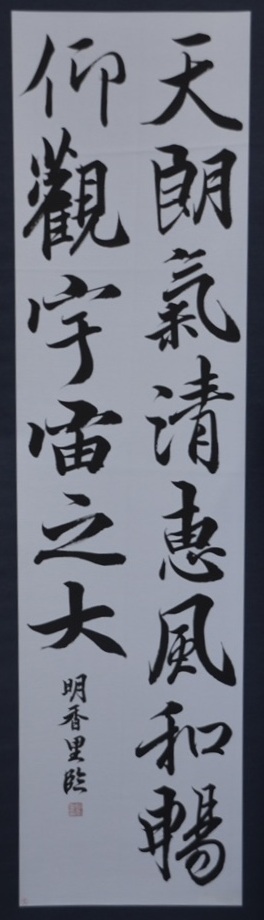 天朗氣清惠風和暢
仰觀宇宙之大
明香里臨